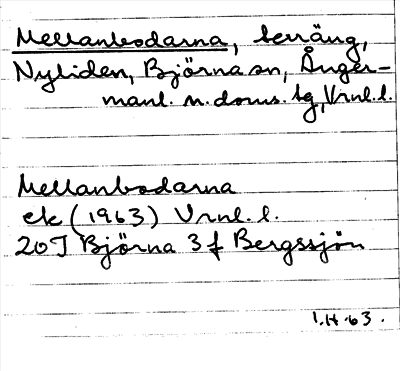 Mellanbodarna, terräng,
Nyliden, Björna sn, Ånger-
manl. n. doms. tg, Vrnl. l.
Mellanbodarna
ek (1963) Vrnl. l.
20J Björna 3f Bergssjön
1.H.63.